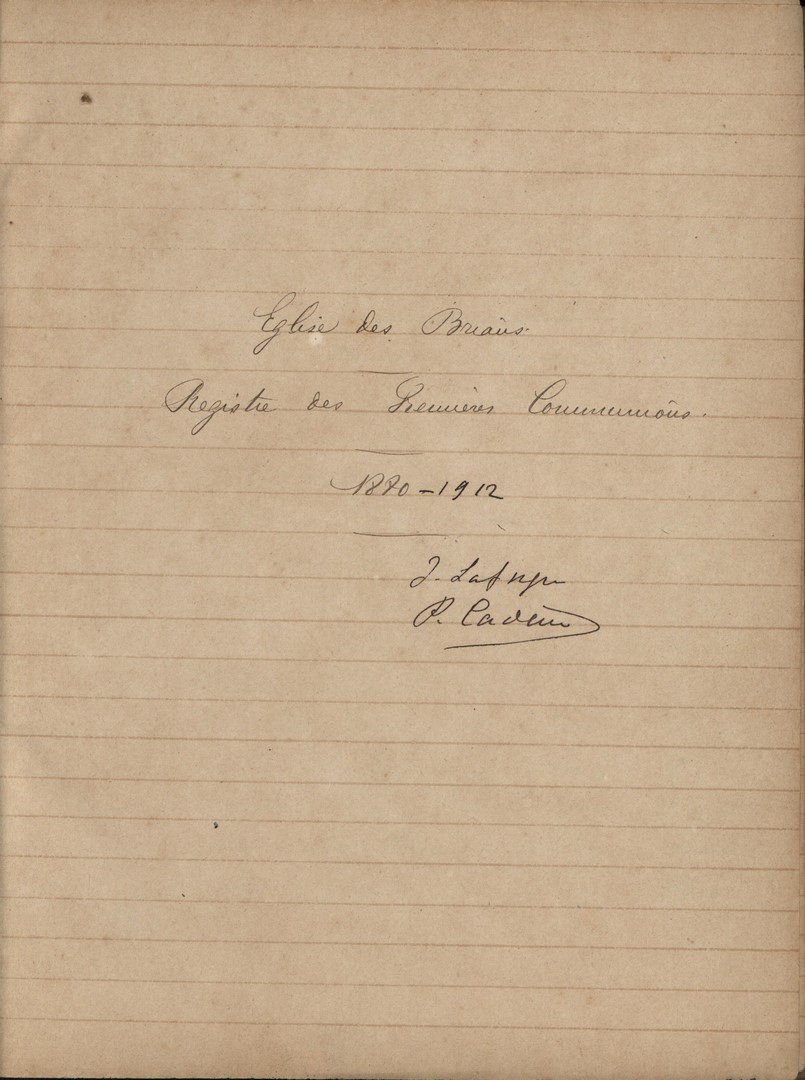 Eglise des Briaûs.
Registre des Premières Communions.
1870-1912
J. Lafuge
P. Cadein